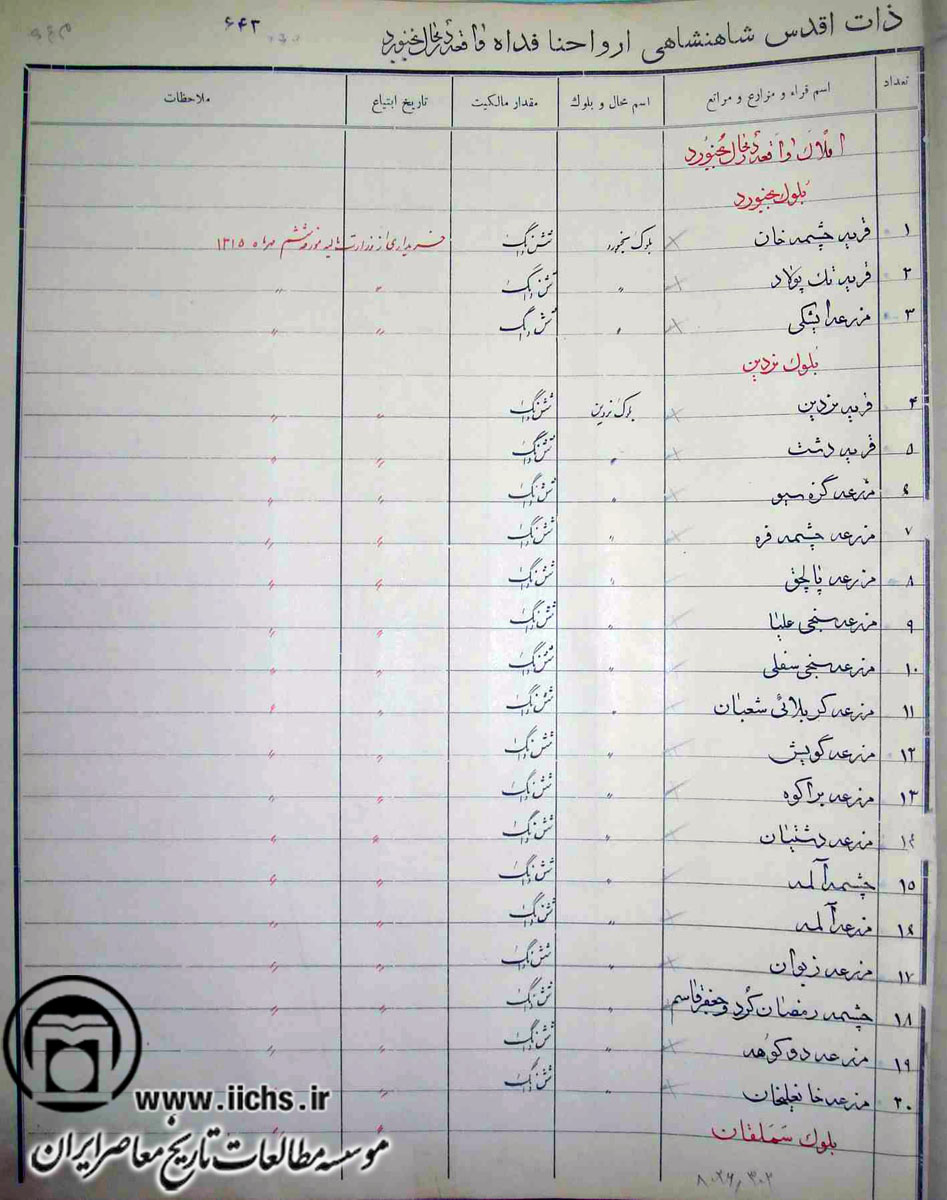 ۶۴۳
ذات اقدس شاهنشاهی ارواحنا فداه واقعه در محال بجنورد
تعداد	اسم قراء و مزارع و مراتع	اسم محال و بلوک	مقدار مالکیت	تاریخ ابتیاع	ملاحظات
املاک واقعه در محال بجنورد
بلوک بجنورد
۱	قریه چشمه خان	بلوک بجنورد	ششدانگ	خریداری از وزارت مالیه مورخه ششم مهرماه ۱۳۱۵
۲	قریه تک پولاد	〃	ششدانگ	〃	〃
۳	مزرعه ایشکی	〃	ششدانگ	〃	〃
بلوک نردین
۴	قریه نردین	بلوک نردین	ششدانگ	〃	〃
۵	قریه دشت	〃	ششدانگ	〃	〃
۶	مزرعه گزه سیو	〃	ششدانگ	〃	〃
۷	مزرعه چشمه قره	〃	ششدانگ	〃	〃
۸	مزرعه پالچق	〃	ششدانگ	〃	〃
۹	مزرعه سنجی علیا	〃	ششدانگ	〃	〃
۱۰	مزرعه سنجی سفلی	〃	ششدانگ	〃	〃
۱۱	مزرعه کربلائی شعبان	〃	ششدانگ	〃	〃
۱۲	مزرعه گویش	〃	ششدانگ	〃	〃
۱۳	مزرعه براکوه	〃	ششدانگ	〃	〃
۱۴	مزرعه دشتبان	〃	ششدانگ	〃	〃
۱۵	چشمه آلمه	〃	ششدانگ	〃	〃
۱۶	مزرعه آلمه	〃	ششدانگ	〃	〃
۱۷	مزرعه زیوان	〃	ششدانگ	〃	〃
۱۸	چشمه رمضان کرد و جعفر قاسم	〃	ششدانگ	〃	〃
۱۹	مزرعه دو کوهه	〃	ششدانگ	〃	〃
۲۰	مزرعه خانعلیخان	〃	ششدانگ	〃	〃
بلوک سملقان
۸۰۲۶٫۳۰۲
www.iichs.ir
موسسه مطالعات تاریخ معاصر ایران